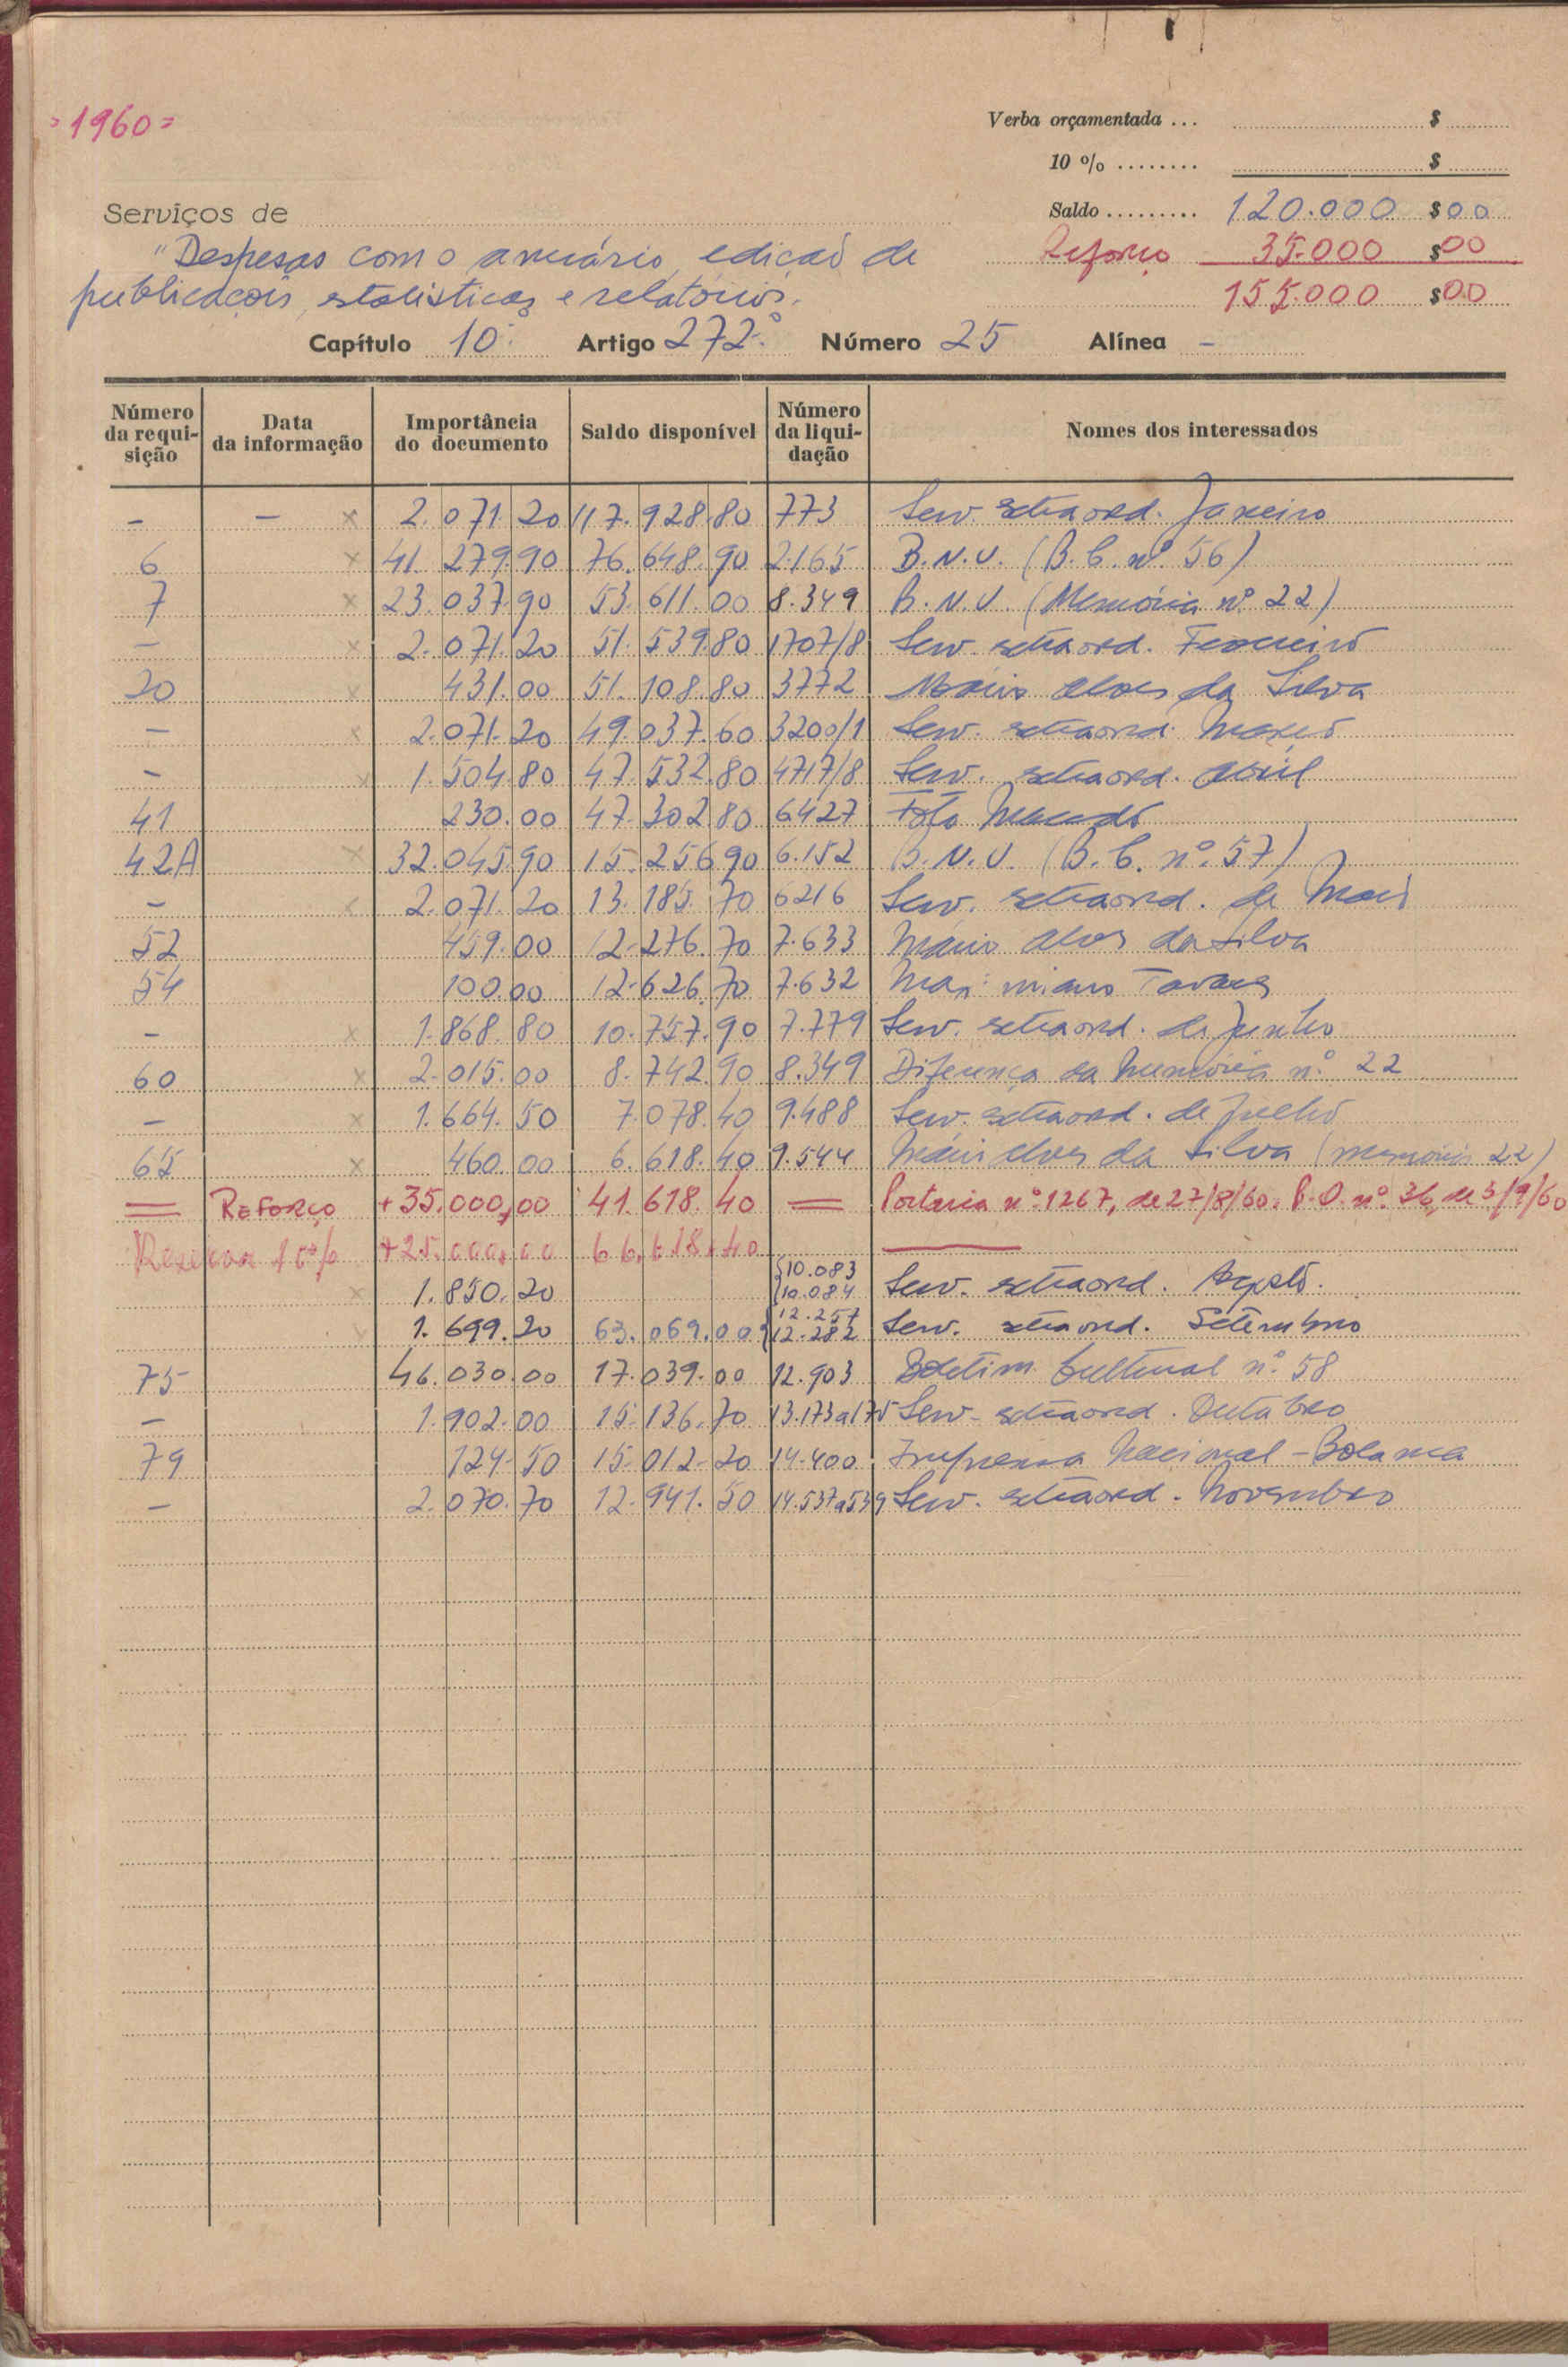 =1960=
Verba orçamentada ... $
10 % ........ $
Serviços de
Saldo ......... 120.000 $00
"Despesas com o anuário, edição de
Reforço 35.000 $00
publicações, estatísticas e relatórios.
155.000 $00
Capítulo 10.º Artigo 272.º Número 25 Alínea –
Número da requisição Data da informação Importância do documento Saldo disponível Número da liquidação Nomes dos interessados
– – x 2.071.20 117.928.80 773 Serv. extraord. Janeiro
6 x 41.279.90 76.648.90 2.165 B.N.U. (B.C. nº 56)
7 x 23.037.90 53.611.00 8.349 B.N.U. (Memória nº 22)
– x 2.071.20 51.539.80 1707/8 Serv. extraord. Fevereiro
20 x 431.00 51.108.80 3772 Mário Alves da Silva
– x 2.071.20 49.037.60 3200/1 Serv. extraord. Março
– x 1.504.80 47.532.80 4717/8 Serv. extraord. Abril
41 230.00 47.302.80 6427 Foto
42A x 32.045.90 15.256.90 6.152 B.N.U. (B.C. nº 57)
– x 2.071.20 13.185.70 6216 Serv. extraord. de Maio
52 459.00 12.276.70 7.633 Mário Alves da Silva
54 100.00 12.626.70 7.632 Maximiano Tavares
– x 1.868.80 10.757.90 7.779 Serv. extraord. de Junho
60 x 2.015.00 8.742.90 8.349 Diferença da Memória nº 22
– x 1.664.50 7.078.40 9.488 Serv. extraord. de Julho
65 x 460.00 6.618.40 9.544 Mário Alves da Silva (memória 22)
= REFORÇO +35.000,00 41.618.40 = Portaria nº 1267, de 27/8/60. B.O. nº 36, de 3/9/60
Reserva 10% +25.000,00 66.618.40
x 1.850.20 {10.083 10.084 Serv. extraord. Agosto.
1.699.20 63.069.00 {12.257 12.282 Serv. extraord. Setembro
75 46.030.00 17.039.00 12.903 Boletim Cultural nº 58
– 1.902.00 15.136.70 13.173a175 Serv. extraord. Outubro
79 124.50 15.012.20 14.400 Imprensa Nacional – Bolama
– 2.070.70 12.941.50 14.537a539 Serv. extraord. Novembro